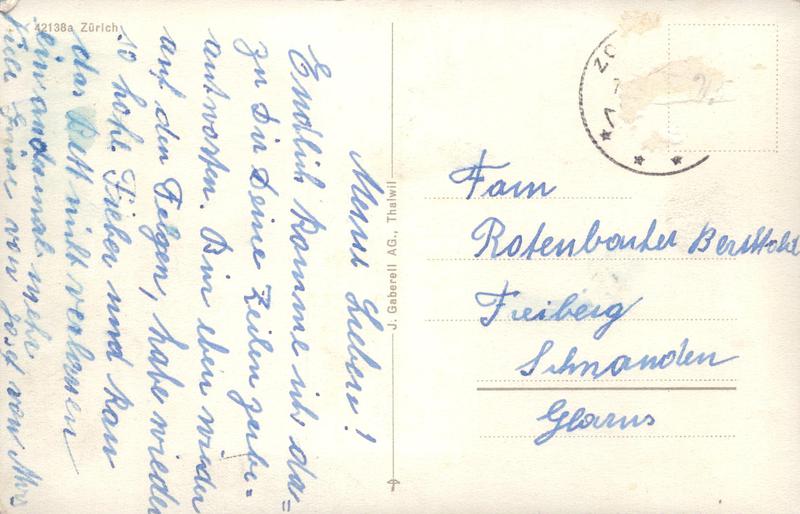 42138a Zürich
Meine Lieben!
Endlich komme ich da=
zu Dir Deine Zeilen zu be=
antworten. Bin eben wieder
auf den Felgen, habe wieder
so hohe Fieber und kan
das Bett nicht verlassen
ein andermal mehr
viele Grüsse von
J. Gaberell AG., Thalwil
Fam
Rotenbacher Berthold
Freiberg
Schwanden
Glarus